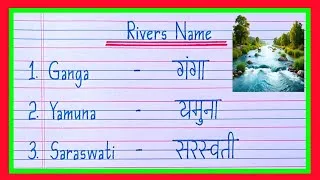 Rivers Name
1. Ganga - गंगा
2. Yamuna - यमुना
3. Saraswati - सरस्वती